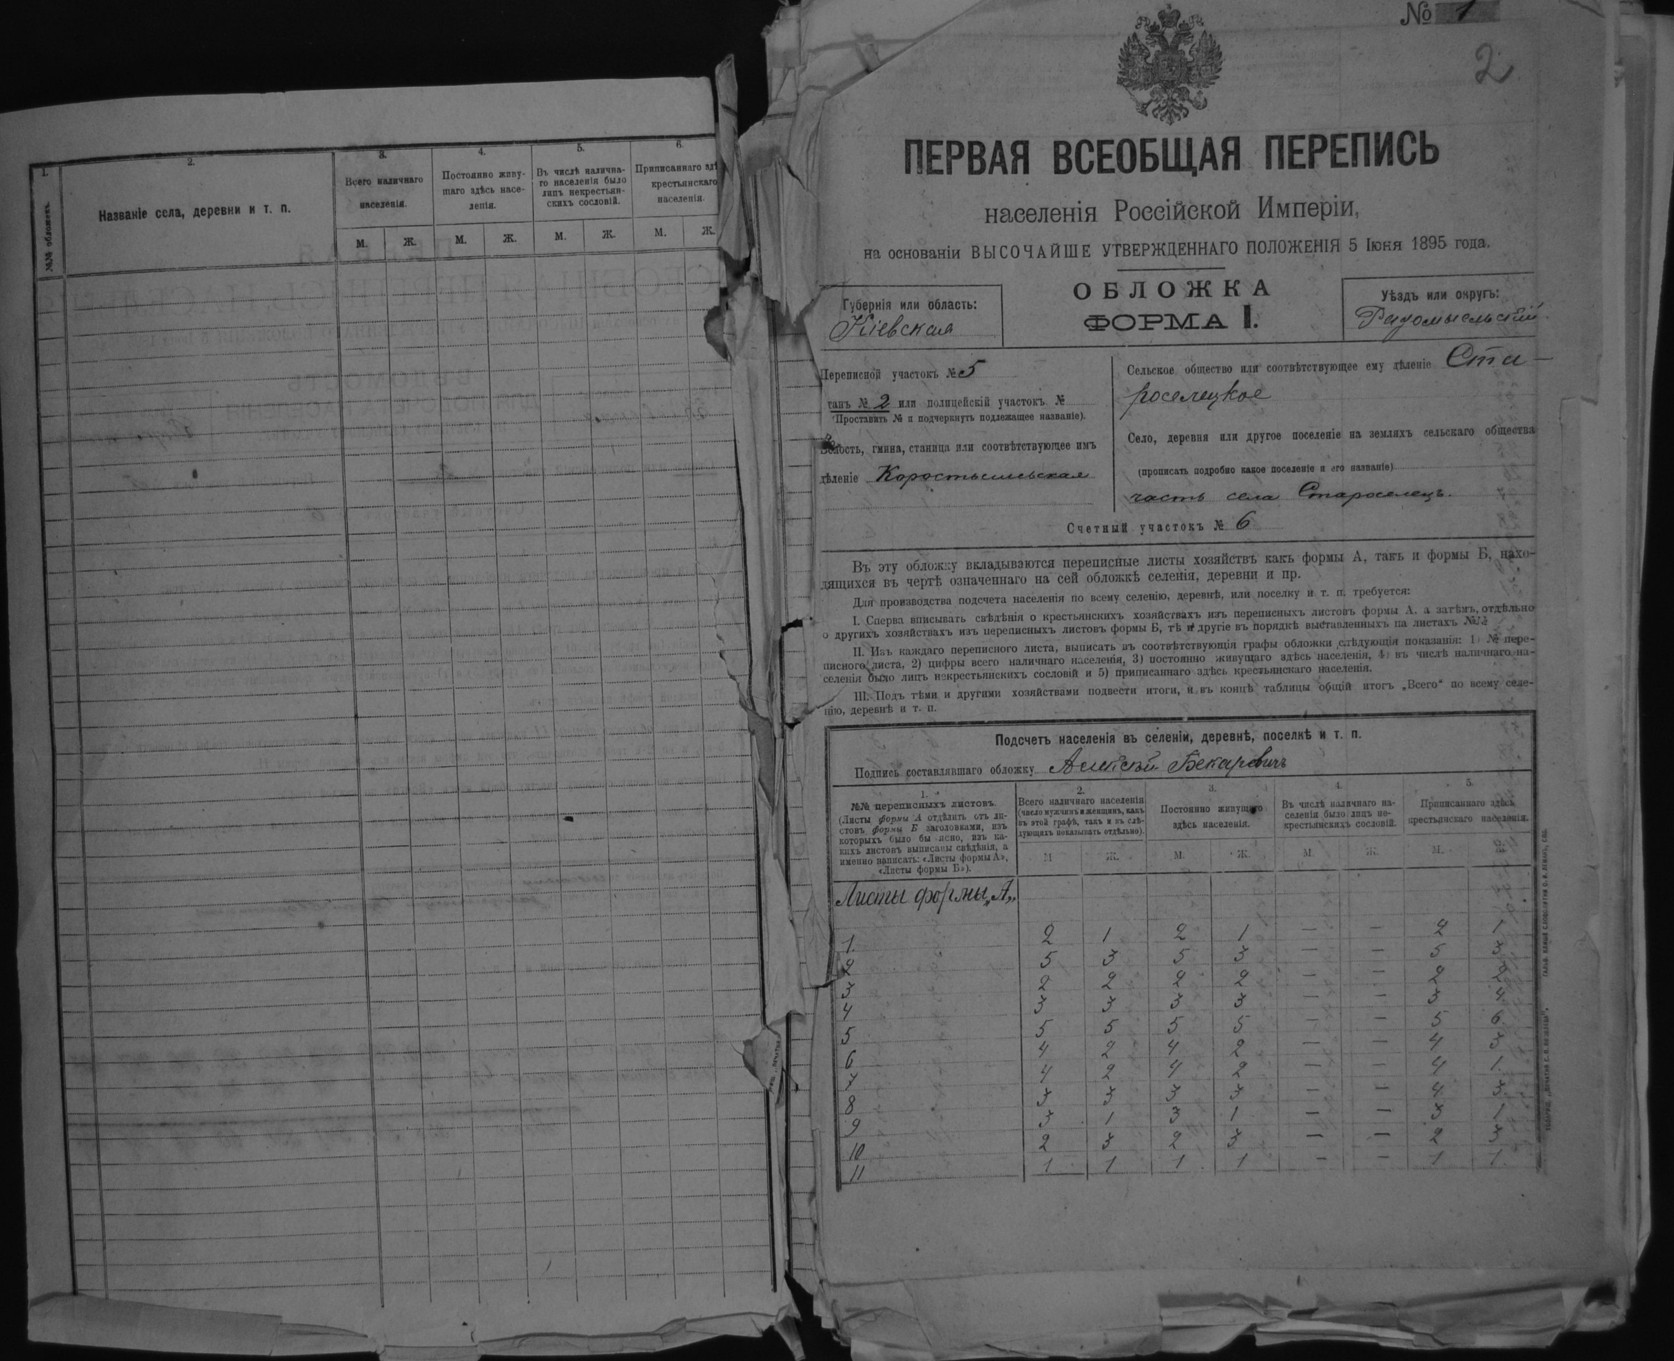 1.
2.
3.
4.
5.
6.
№№ обложекъ.
Названіе села, деревни и т. п.
Всего наличнаго
населенія.
Постоянно живу-
щаго здѣсь насе-
ленія.
Въ числѣ налична-
го населенія было
лицъ некрестьян-
скихъ сословій.
Приписаннаго здѣ
крестьянскаго
населенія.
М. Ж. М. Ж. М. Ж. М. Ж.
№ 1
2
ПЕРВАЯ ВСЕОБЩАЯ ПЕРЕПИСЬ
населенія Россійской Имперіи,
на основаніи ВЫСОЧАЙШЕ УТВЕРЖДЕННАГО ПОЛОЖЕНІЯ 5 Іюня 1895 года.
ОБЛОЖКА
ФОРМА I.
Губернія или область:
Кіевская
Уѣздъ или округъ:
Радомысльскій
Переписной участокъ № 5
танъ № 2 или полицейскій участокъ №
(Проставить № и подчеркнуть подлежащее названіе).
Волость, гмина, станица или соотвѣтствующее имъ
дѣленіе Коростышевская
Сельское общество или соотвѣтствующее ему дѣленіе Ста-
роселецкое
Село, деревня или другое поселеніе на земляхъ сельскаго общества
(прописать подробно какое поселеніе и его названіе)
часть села Староселецъ.
Счетный участокъ № 6
Въ эту обложку вкладываются переписные листы хозяйствъ какъ формы А, такъ и формы Б, нахо-
дящихся въ чертѣ означеннаго на сей обложкѣ селенія, деревни и пр.
Для производства подсчета населенія по всему селенію, деревнѣ, или поселку и т. п. требуется:
I. Сперва вписывать свѣдѣнія о крестьянскихъ хозяйствахъ изъ переписныхъ листовъ формы А. а затѣмъ, отдѣльно
о другихъ хозяйствахъ изъ переписныхъ листовъ формы Б, тѣ и другіе въ порядкѣ выставленныхъ на листахъ №№
II. Изъ каждаго переписного листа, выписать въ соотвѣтствующія графы обложки слѣдующія показанія: 1) № пере-
писного листа, 2) цифры всего наличнаго населенія, 3) постоянно живущаго здѣсь населенія, 4) въ числѣ наличнаго на-
селенія было лицъ некрестьянскихъ сословій и 5) приписаннаго здѣсь крестьянскаго населенія.
III. Подъ тѣми и другими хозяйствами подвести итоги, и въ концѣ таблицы общій итогъ „Всего" по всему селе-
нію, деревнѣ и т. п.
Подсчетъ населенія въ селеніи, деревнѣ, поселкѣ и т. п.
Подпись составлявшаго обложку Алексѣй Бекаревичъ
1.
№№ переписныхъ листовъ
(Листы формы А отдѣлить отъ ли-
стовъ формы Б заголовками, изъ
которыхъ было бы ясно, изъ ка-
кихъ листовъ выписаны свѣдѣнія, а
именно написать: «Листы формы А»,
«Листы формы Б»).
2.
Всего наличнаго населенія
(число мужчинъ и женщинъ, какъ
въ этой графѣ, такъ и въ слѣ-
дующихъ показывать отдѣльно).
3.
Постоянно живущаго
здѣсь населенія.
4.
Въ числѣ наличнаго на-
селенія было лицъ не-
крестьянскихъ сословій.
5.
Приписаннаго здѣсь
крестьянскаго населенія.
М. Ж. М. Ж. М. Ж. М. Ж.
Листы формы „А„
1 2 1 2 1 — — 2 1
2 5 3 5 3 — — 5 3
3 2 2 2 2 — — 2 2
4 3 3 3 3 — — 3 4
5 5 5 5 5 — — 5 6
6 4 2 4 2 — — 4 3
7 4 2 4 2 — — 4 1
8 3 3 3 3 — — 4 3
9 3 1 3 1 — — 3 1
10 2 3 2 3 — — 2 3
11 1 1 1 1 — — 1 1